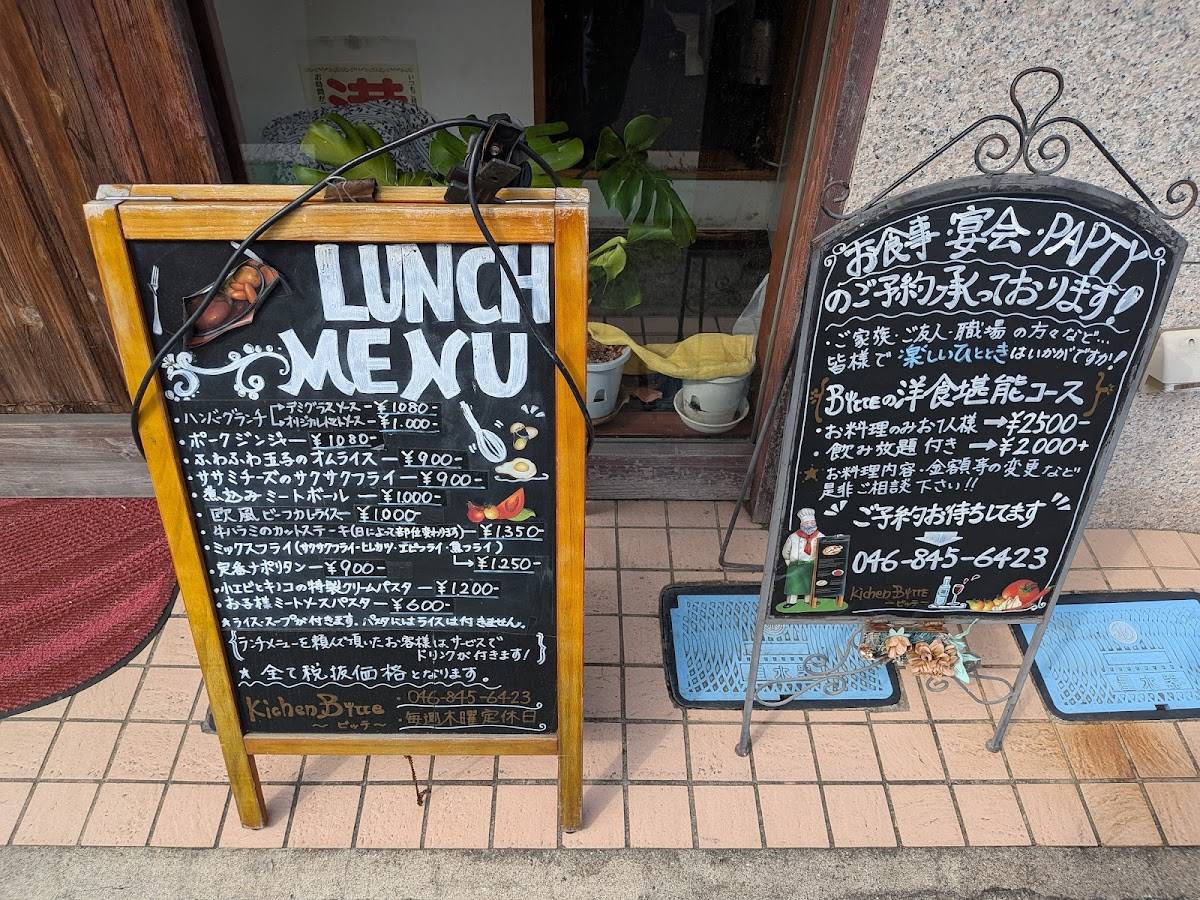 いつも
お時間
満
LUNCH
MENU
・ハンバーグランチ デミグラスソース-¥1080-
オリジナルトマトソース-¥1.000-
・ポークジンジャー-¥1080-
・ふわふわ玉子のオムライス-¥900-
・ササミチーズのサクサクフライ-¥900-
・煮込みミートボール-¥1000-
・欧風ビーフカレライス-¥1000-
・牛ハラミのカットステーキ(日によって部位変わります)-¥1.350-
・ミックスフライ(サクサクフライ・ヒレカツ・エビフライ・魚フライ)
→¥1250-
・定番ナポリタン-¥900-
・小エビとキノコの特製クリームパスタ-¥1200-
・お子様ミートソースパスター¥600-
★ライス・スープが付きます。パスタにはライスは付きません。
ランチメニューを頼んで頂いたお客様はサービスで
ドリンクが付きます!
★全て税抜価格となります。
Kichen Bytte
~ビッテ~
・046-845-6423
・毎週木曜定休日
お食事・宴会・PAPTY
のご予約承っております!
・ご家族・ご友人・職場の方々など…
皆様で楽しいひとときはいかがですか!
Bytteの洋食堪能コース
・お料理のみお1人様→¥2500-
・飲み放題付き→¥2.000+
★お料理内容・金額等の変更など
是非ご相談下さい!!
ご予約お待ちしてます
046-845-6423
Kichen Bytte
~ビッテ~